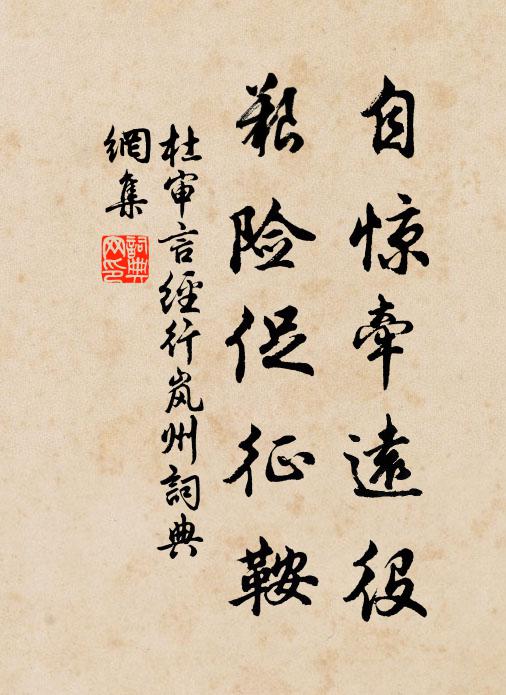 自惊牵遠役
艱险促征鞍
杜审言經行岚州詞典
網集
詞典
网印